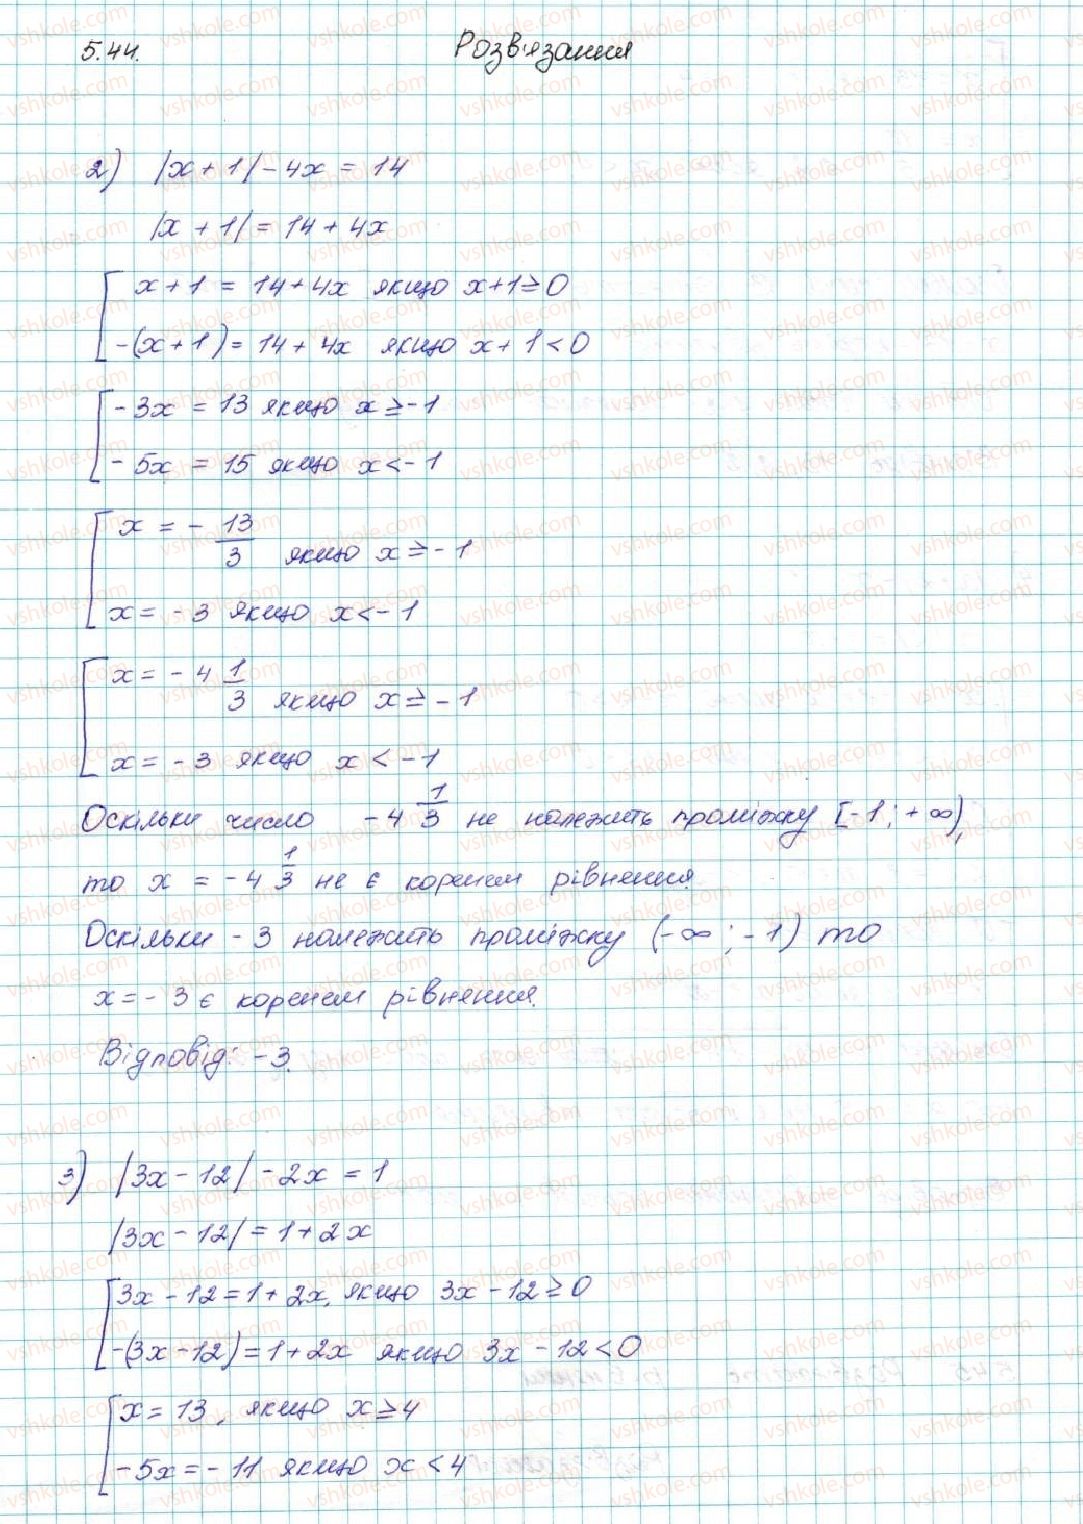 5.44. Розв'язання
2) |x + 1| - 4x = 14
|x + 1| = 14 + 4x
[ x + 1 = 14 + 4x якщо x + 1 ≥ 0
-(x + 1) = 14 + 4x якщо x + 1 < 0
[ -3x = 13 якщо x ≥ -1
-5x = 15 якщо x < -1
[ x = -13/3 якщо x ≥ -1
x = -3 якщо x < -1
[ x = -4 1/3 якщо x ≥ -1
x = -3 якщо x < -1
Оскільки число -4 1/3 не належить проміжку [-1; +∞),
то x = -4 1/3 не є коренем рівняння.
Оскільки -3 належить проміжку (-∞; -1) то
x = -3 є коренем рівняння.
Відповід: -3.
3) |3x - 12| - 2x = 1
|3x - 12| = 1 + 2x
[ 3x - 12 = 1 + 2x, якщо 3x - 12 ≥ 0
-(3x - 12) = 1 + 2x якщо 3x - 12 < 0
[ x = 13, якщо x ≥ 4
-5x = -11 якщо x < 4